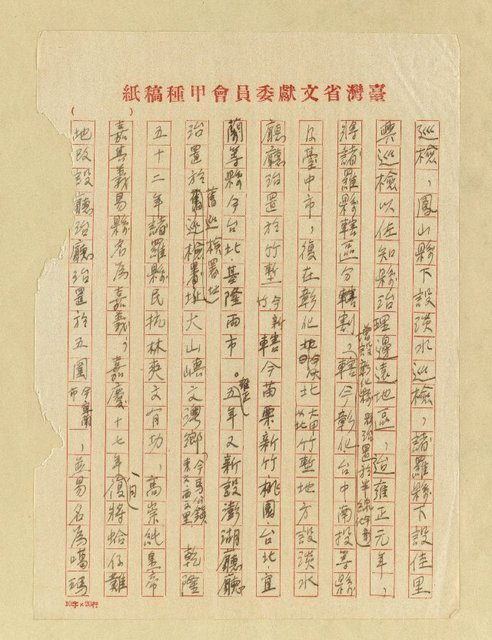 紙稿種甲會員委獻文省灣臺
巡檢，鳳山縣下設淡水巡檢，諸羅縣下設佳里
興巡檢以佐知縣治理邊遠地區，迨雍正元年，
增設彰化縣 縣治置於半線
將諸羅縣轄區分轄割，轄今彰化台中南投等縣
及臺中市，復在彰化 北 竹塹地方設淡水
廳廳治置於竹塹 今新竹 轄今苗栗·新竹桃園·台北宜
蘭等縣今台北·基隆兩市。雍正五年又新設澎湖廳廳
治置於舊巡檢署址大山嶼文澳鄉 今馬公鎮 乾隆
舊巡檢署地
五十二年諸羅縣民抗林爽文有功，高崇純皇帝
嘉其義易縣名為嘉義，嘉慶十七年八月復將蛤仔難
地改設廳治廳治置於五圍 今宜蘭市，並易名為噶瑪
10字×20行